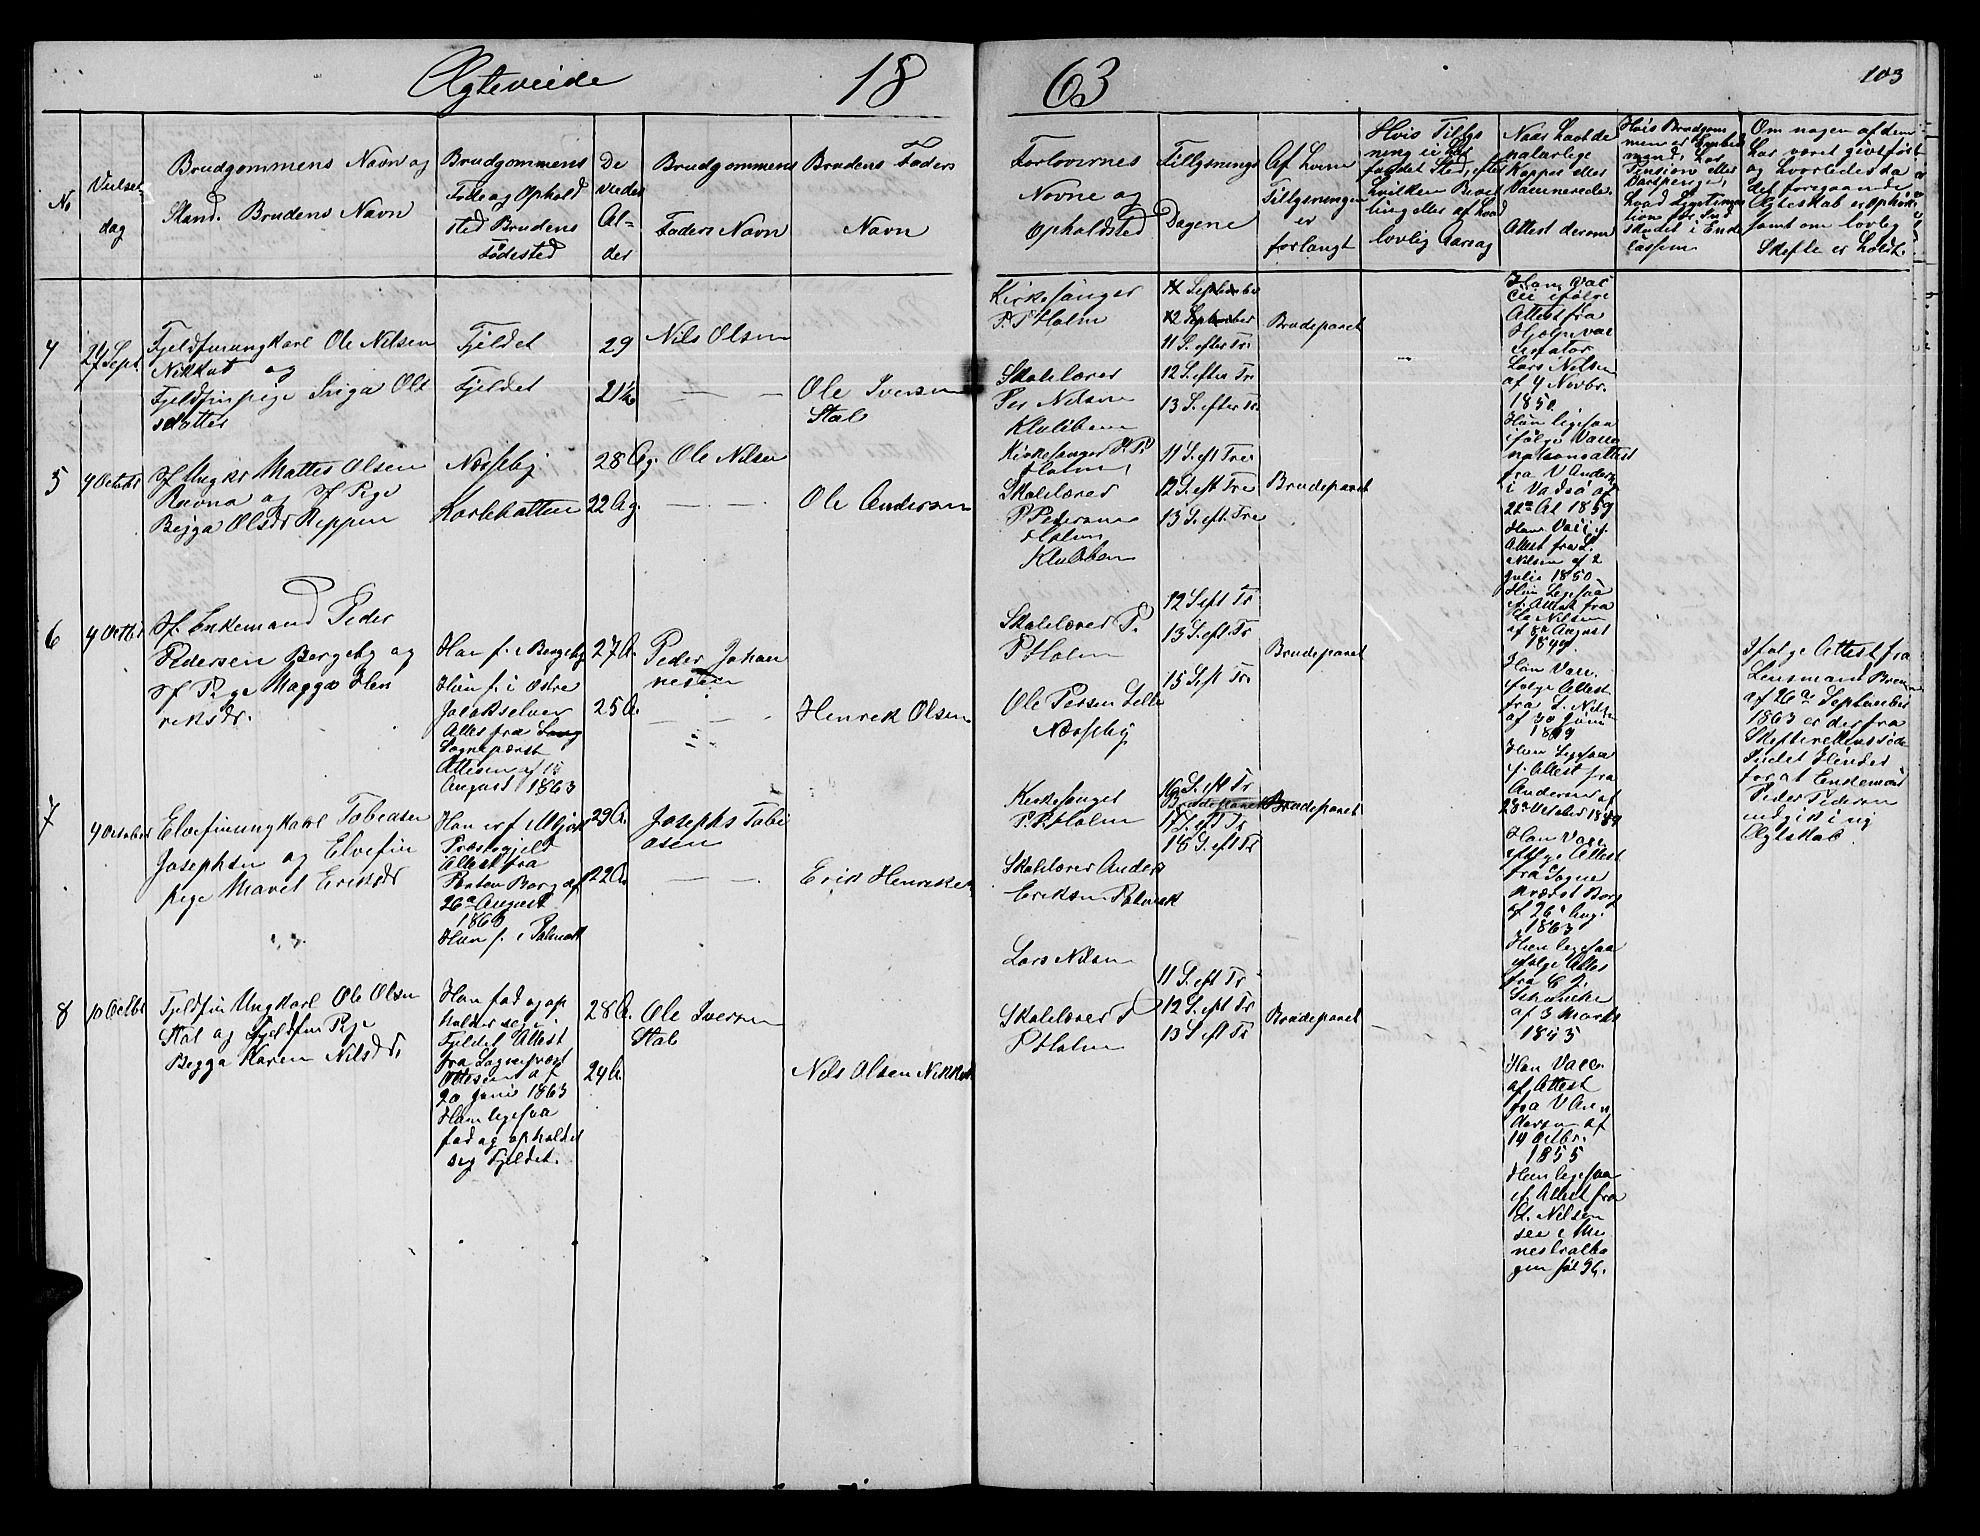 Ægteviede 18 63
103
No
Vielses
dag
Brudgommens Navn og
Stand. Brudens Navn
Brudgommens
Føde og Ophold
sted Brudens
Fødested
De
viedes
Al-
der
Brudgommens
Faders Navn
Brudens Faders
Navn
Forlovernes
Navne og
Opholdsted
Tillysnings
Dagene
Af hvem
Tillysningen
er
forlangt
Hvis Tillys
ning ei har
fundet Sted, efter
hvilken Bevil
ling eller af hvad
lovlig Aarsag
Naar havt de
naturlige
Kopper eller
Vaccinerede.
Attest derom
Hvis Brudgom
men er
mand, har
Pension eller
hvad
tion for Ind
skudet i Enke
cassen
Om nogen af dem
har været givt før
og hvorledes da
det foregaaende
Ægteskab er Ophørt
samt om lovlig
Skifte er holdt.
4
24 Sept.
Fjeldfinungkarl Ole Nilsen
Nikkut og
Fjeldfinpige Inga Ols
datter
Fjeldet
Fjeldet
29
21½
Nils Olsen
Ole Iversen
Stal
Kirkesanger
P. P Holm
Skolelærer
Per Nilsen
Klubben
11 September
12 September
11 S. efter Tr.
12 S. efter Tr
13 S. efter Tr.
Brudeparet
Han Vac
cii ifølge
Attest fra
Hjelpevac
cinatør
Lars Nilsen
af 4 Novbr.
1850.
5
4 Octobr
Sf Ungkr Mattes Olsen
Ravna og Sf Pige
Begga Olsdr Reppen
Næsseby
Karlebotten
28 Ag.
22 Ag.
Ole Nilsen
Ole Andersen
Kirkesanger P. P.
Holm,
Skolelærer
P. Pedersen
Holm
Klubben
11 S. eft Tre
12 S. eft Tre
13 S. eft. Tre
Brudeparet
Hun ligesaa
ifølge Vacci
nationsattest
fra V Anders
i Vadsø af
22de 1859
Han Vaci if.
Attest fra L.
Nilsen af 2
Julii 1850
Hun Ligesaa
if. Attest fra
Nilsen
af August
6
4 Octbr
Sf. Enkemand Peder
Pedersen Bergeby og
Sf Pige Magga Hen
riksdr.
Han f. i Bergeby
Hun f. i Østre
Jacobselven
Attest fra
Sogneprest
Ottesen af 15
August 1863
27 A.
25 A.
Peder Johan
nesen
Henrik Olsen
Skolelærer P.
P Holm
Ole Persen Lille
Næsseby
12 S eft Tr
13 S. eft. Tr
15 S eft Tr.
Brudeparet
Han Vacc.
følge Attest
fra L. Nilsen
af 30 Juni
Hun Ligesaa
if. Attest fra
Andersen af
28de October
Ifølge Attest fra
Lensmand
af 26de September
1863 er der fra
Skifterettens Side
Intet Hinder
for at Enkemand
Peder Pedersen
indgik i ny
Ægtskab.
7
4 October
Elvefinungkarl Tobiasen
Josephsen og Elvefin
pige Marit Eriksdr
Han er f.
Præstegjeld
Attest fra
Pastor Borg af
26de August
1863
Hun f. i Polmak
29 A.
22 A.
Josephs Tobi
asen
Erik Henriksen
Kirkesanger
P. P. Holm
Skolelærer Anders
Eriksen Polmak
16 S. eft Tr
Brudeparet
17 S. eft Tr
18 S. eft Tr
Brudeparet
Han Vacc.
ifølge Attest
fra Sogne
præst Borg
af 26de Aug.
1863
Hun ligesaa
ifølge Attes
fra C J.
Schanche
af 3 Marts
8
10 Octbr
Fjeldfin Ungkarl Ole Olsen
Stal og Fjeldfin Pige
Begga Karen Nilsdr
Han fød og op
holder sig i
Fjeldet Attest
fra Sogneprest
Ottesen af
20 Juni 1863
Hun ligesaa
fød og opholder
sig Fjeldet.
28 A.
24 A.
Ole Iversen
Stal
Nils Olsen Nikkut
Lars Nilsen
Skolelærer P
P Holm
11 S. eft Tr
12 S. eft Tr
13 S eft Tr
Brudeparet
Han Vacc.
af Attest
fra V An
dersen af
14 Octbr.
1855
Hun ligesaa
if. Attest fra
L. Nilsen
see i Mi
nestralbo
gen